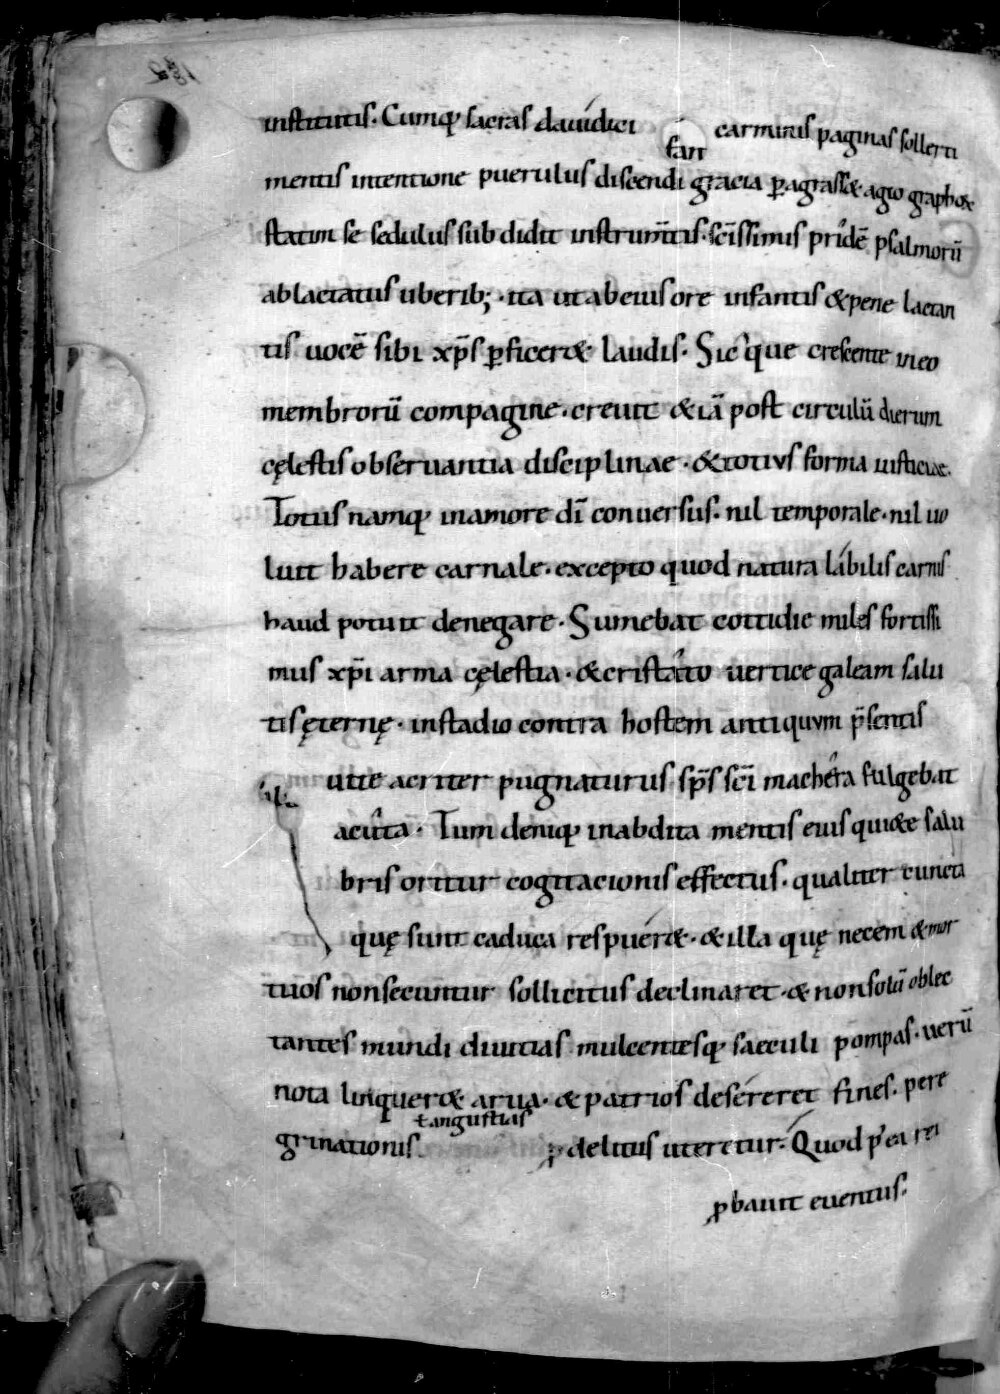 institutis. Cumq; sacras dauidici carminis paginas sollerti
fari
mentis intentione puerulus discendi gracia ꝑagrass&. agio grapho&
statim se sedulus subdidit instrum̄tis. sc̄issimus pridē psalmorū
ablactatus uberib;. ita ut ab eius ore infantis & pene lactan
tis uocē sibi xp̄s ꝑficer& laudis. Sicque crescente in eo
membrorū compagine. creuit & iā post circulū dierum
cęlestis obseruantia disciplinae. & totius forma iusticiae.
Totus namq; in amore dī conuersus. nil temporale. nil uo
luit habere carnale. excepto quod natura lábilis carnis
haud potuit denegare. Sumebat cottidie miles fortissi
mus xp̄i arma cęlestia. & cristato uertice galeam salu
tis ęternę. in stadio contra hostem antiquum p̄sentis
uite acriter pugnaturus sp̄s sc̄i machera fulgebat
acuta. Tum deniq; in abdita mentis eius qui&e salu
bris oritur cogitacionis effectus. qualiter cuncta
quę sunt caduca respuér&. & illa quę necem & mor
tuos non secuntur sollicitus declinaret. & non solū oblec
tantes mundi diuitias mulcentesq; saeculi pompas. uerū
nota linquer& arua. & patrios deséreret fines. pere
t angustias
grinationis ꝓ delitiis uteretur. Quod p̄ea rei
ꝓbauit euentus.